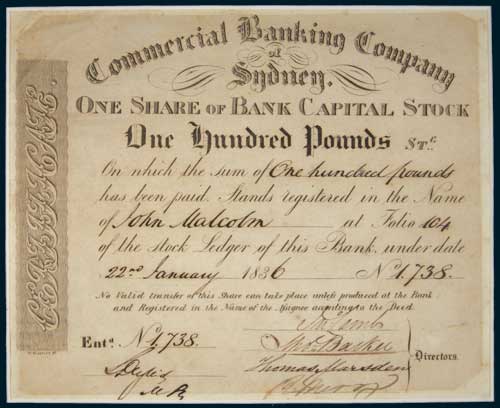 Commercial Banking Company
of
Sydney.
ONE SHARE OF BANK CAPITAL STOCK
One Hundred Pounds STG.
On which the sum of One hundred pounds
has been paid. Stands registered in the Name
of John Malcolm at Folio 104
of the Stock Ledger of this Bank, under date
22nd January 1836 No 1,738.
No Valid transfer of this Share can take place unless produced at the Bank
and Registered in the Name of the Assignee according to the Deed.
Entd. No 1,738.
Lamb
Thos. Barker
Thomas Marsden
Directors.